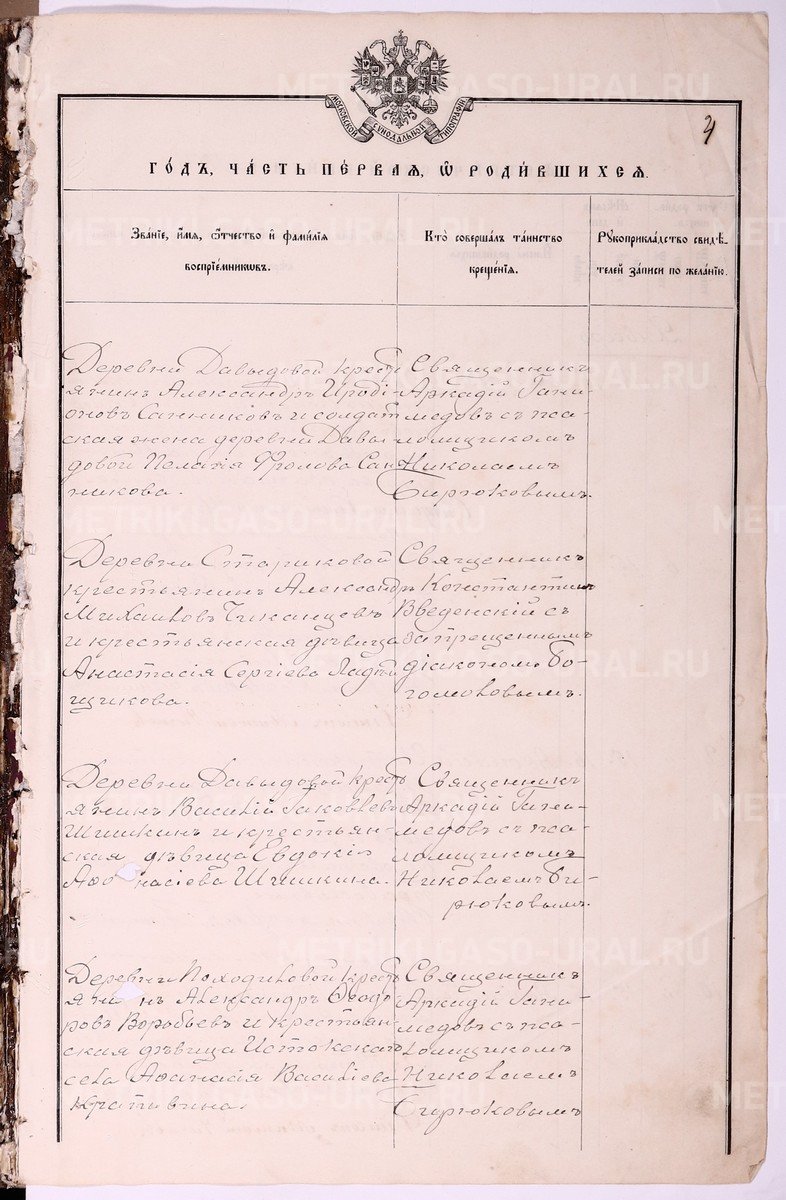 МОСКОВСКОЙ СѴНОДАЛЬНОЙ ТИПОГРАФІИ
3
ГО́ДЪ, ЧА́СТЬ ПЕ́РВАЯ, Ѽ РОДИ́ВШИХСЯ.
Зва́нїе, и́мя, ѻ́тчество и҆ фами́лїя
воспрїе́мниковъ.
Кто̀ соверша́лъ та́инство
креще́нїя.
Рꙋкоприкла́дство свидѣ́-
телей за́писи по жела́нїю.
Деревни Давыдовой кресть
янинъ Александръ Ироді-
оновъ Санниковъ и солдат
ская жена деревни Давы-
довой Пелагія Фролова Сан
никова.
Священникъ
Аркадій Гани-
медовъ съ пса-
ломщикомъ
Николаемъ
Бирюковымъ.
Деревни Стариковой
крестьянинъ Александръ
Михаиловъ Чиканцевъ
и крестьянская дѣвица
Анастасія Сергіева Лад
щикова.
Священникъ
Константинъ
Введенскій съ
запрещеннымъ
діакономъ Бо-
гомоловымъ.
Деревни Давыдовой кресть
янинъ Василій Іаковлевъ
Шишкинъ и крестьян-
ская дѣвица Евдокія
Афонасіева Шишкина.
Священникъ
Аркадій Гани-
медовъ съ пса-
ломщикомъ
Николаемъ Би-
рюковымъ.
Деревни Походиловой кресть
янинъ Александръ Ѳеодо
ровъ Воробьевъ и крестьян-
ская дѣвица Истокскаго
села Афанасія Василіева
Крапивина.
Священникъ
Аркадій Гани-
медовъ съ пса-
ломщикомъ
Николаемъ
Бирюковымъ
METRIKI.GASO-URAL.RU